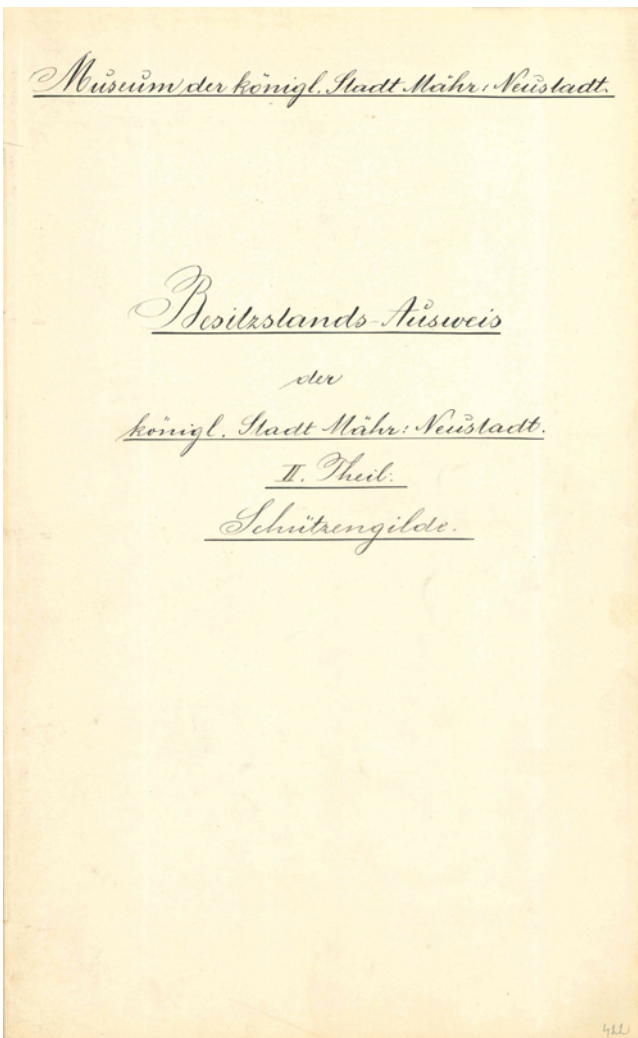 Museum der königl. Stadt Mähr: Neustadt.
Besitzstands-Ausweis
der
königl. Stadt Mähr: Neustadt.
II. Theil:
Schützengilde.
422